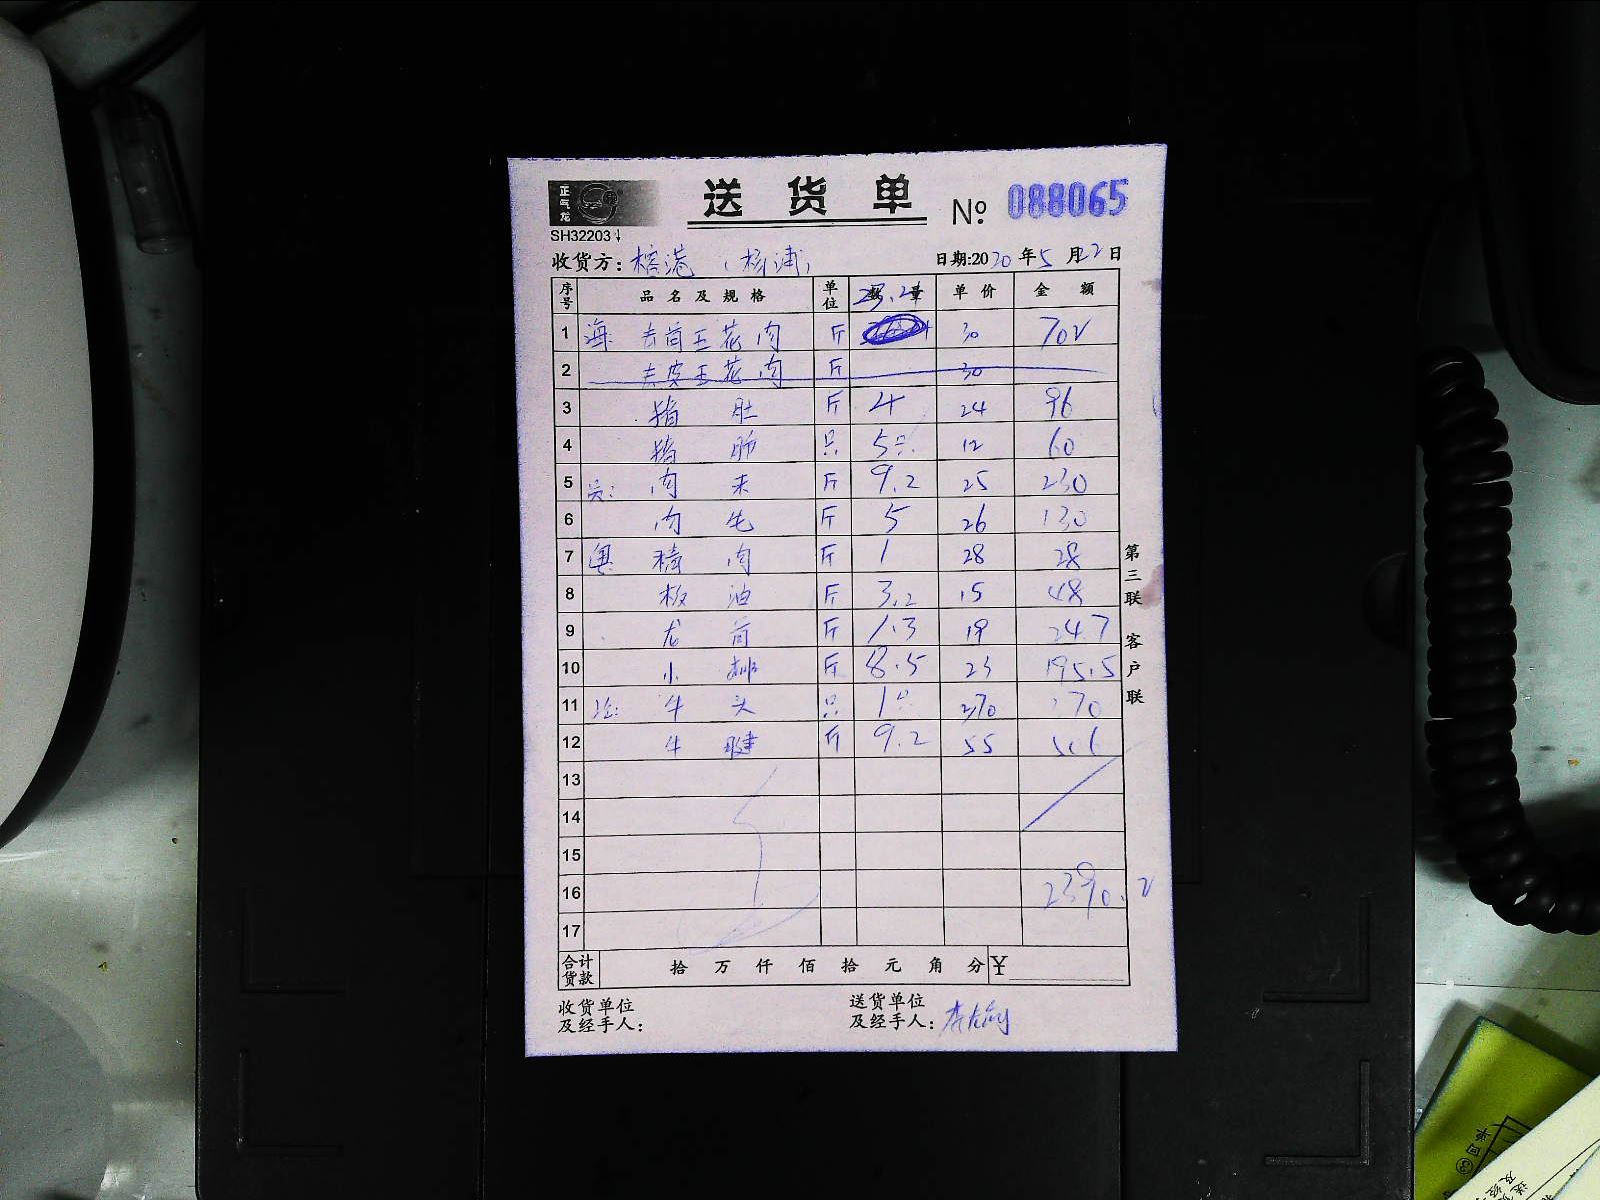 正气龙
送货单 № 088065
SH32203
收货方: 榕港 (杨浦) 日期:2020年5月22日
序号 品名及规格 单位 数量 单价 金额
23.4
1 海 去骨五花肉 斤 30 702
2 去皮五花肉 斤 30
3 猪肚 斤 4 24 96
4 猪肺 只 5只 12 60
5 头: 肉末 斤 9.2 25 230
6 肉生 斤 5 26 130
7 粤 精肉 斤 1 28 28
8 板油 斤 3.2 15 48
9 龙骨 斤 1.3 19 24.7
10 小排 斤 8.5 23 195.5
11 牛头 只 1只 370 370
12 牛腱 斤 9.2 55 506
13
14
15
16 2390.2
17
合计货款 拾 万 仟 佰 拾 元 角 分 ¥
收货单位 送货单位
及经手人: 及经手人:
第三联 客户联